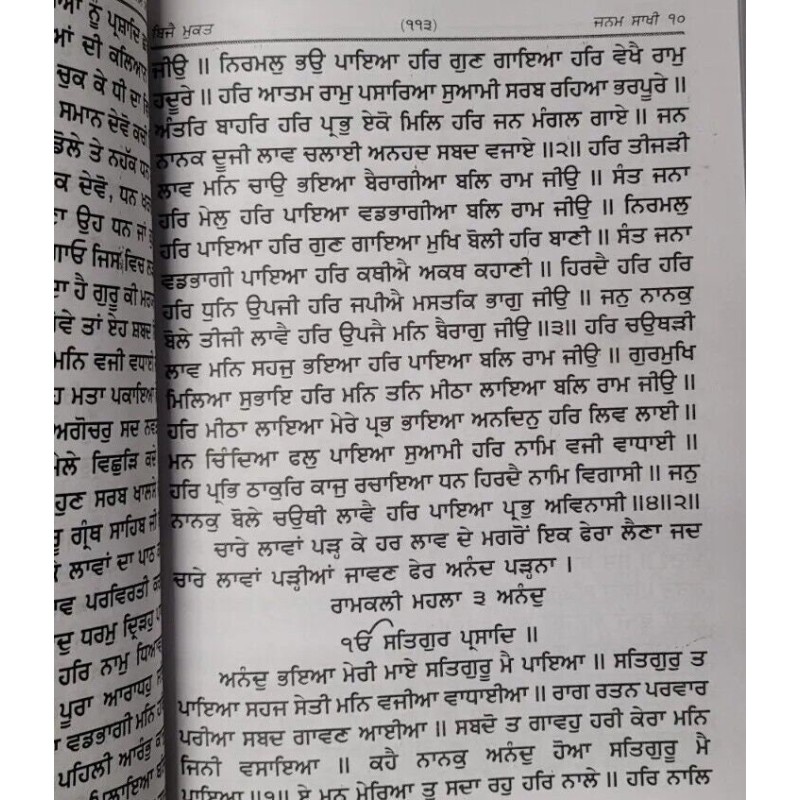 ਆਂ ਨੂੰ ਪ੍ਰਸ਼ਾਦਿ
ਆਂ ਦੀ ਕਲਿਆਣ
ਚੁਕ ਕੇ ਧੀ ਦਾ
ਸਮਾਨ ਦੇਵੋ
ਡੋਲੇ ਤੇ ਨਹੱਕ ਧਨ
ਕ ਦੇਵੋ, ਧਨ
ਾ ਉਹ ਧਨ ਜਾਂ
ਗਾਓ ਜਿਸ ਵਿਚ
ਦਾ ਹੈ ਗੁਰੂ ਕੀ
ਵੇ ਤਾਂ ਏਹ ਸ਼ਬਦ
ਮਨਿ ਵਜੀ ਵਧਾਈ
ਹ ਮਤਾ ਪਕਾਇਆ
ਅਗੋਚਰੁ ਸਦ
ਮੇਲੇ ਵਿਛੁੜਿ ਕਦੇ
ਹੁਣ ਸਰਬ ਖਾਲਸੇ
ਰੂ ਗ੍ਰੰਥ ਸਾਹਿਬ ਜੀ
ਕੇ ਲਾਵਾਂ ਦਾ ਪਾਠ
ਾਵ ਪਰਵਿਰਤੀ
ਦੁ ਧਰਮੁ ਦ੍ਰਿੜਹੁ
ਹਰਿ ਨਾਮੁ ਧਿਆਵਹੁ
ਪੂਰਾ ਆਰਾਧਹੁ
ਵਡਭਾਗੀ ਮਨਿ
ਪਹਿਲੀ ਆਰੰਭੁ
ਮਿਲਾਇਆ
ਬਿਜੈ ਮੁਕਤ (੧੧੩) ਜਨਮ ਸਾਖੀ ੧੦
ਜੀਉ ॥ ਨਿਰਮਲੁ ਭਉ ਪਾਇਆ ਹਰਿ ਗੁਣ ਗਾਇਆ ਹਰਿ ਵੇਖੈ ਰਾਮੁ
ਹਦੂਰੇ ॥ ਹਰਿ ਆਤਮ ਰਾਮੁ ਪਸਾਰਿਆ ਸੁਆਮੀ ਸਰਬ ਰਹਿਆ ਭਰਪੂਰੇ ॥
ਅੰਤਰਿ ਬਾਹਰਿ ਹਰਿ ਪ੍ਰਭੁ ਏਕੋ ਮਿਲਿ ਹਰਿ ਜਨ ਮੰਗਲ ਗਾਏ ॥ ਜਨ
ਨਾਨਕ ਦੂਜੀ ਲਾਵ ਚਲਾਈ ਅਨਹਦ ਸਬਦ ਵਜਾਏ ॥੨॥ ਹਰਿ ਤੀਜੜੀ
ਲਾਵ ਮਨਿ ਚਾਉ ਭਇਆ ਬੈਰਾਗੀਆ ਬਲਿ ਰਾਮ ਜੀਉ ॥ ਸੰਤ ਜਨਾ
ਹਰਿ ਮੇਲੁ ਹਰਿ ਪਾਇਆ ਵਡਭਾਗੀਆ ਬਲਿ ਰਾਮ ਜੀਉ ॥ ਨਿਰਮਲੁ
ਹਰਿ ਪਾਇਆ ਹਰਿ ਗੁਣ ਗਾਇਆ ਮੁਖਿ ਬੋਲੀ ਹਰਿ ਬਾਣੀ ॥ ਸੰਤ ਜਨਾ
ਵਡਭਾਗੀ ਪਾਇਆ ਹਰਿ ਕਥੀਐ ਅਕਥ ਕਹਾਣੀ ॥ ਹਿਰਦੈ ਹਰਿ ਹਰਿ
ਹਰਿ ਧੁਨਿ ਉਪਜੀ ਹਰਿ ਜਪੀਐ ਮਸਤਕਿ ਭਾਗੁ ਜੀਉ ॥ ਜਨੁ ਨਾਨਕੁ
ਬੋਲੇ ਤੀਜੀ ਲਾਵੈ ਹਰਿ ਉਪਜੈ ਮਨਿ ਬੈਰਾਗੁ ਜੀਉ ॥੩॥ ਹਰਿ ਚਉਥੜੀ
ਲਾਵ ਮਨਿ ਸਹਜੁ ਭਇਆ ਹਰਿ ਪਾਇਆ ਬਲਿ ਰਾਮ ਜੀਉ ॥ ਗੁਰਮੁਖਿ
ਮਿਲਿਆ ਸੁਭਾਇ ਹਰਿ ਮਨਿ ਤਨਿ ਮੀਠਾ ਲਾਇਆ ਬਲਿ ਰਾਮ ਜੀਉ ॥
ਹਰਿ ਮੀਠਾ ਲਾਇਆ ਮੇਰੇ ਪ੍ਰਭ ਭਾਇਆ ਅਨਦਿਨੁ ਹਰਿ ਲਿਵ ਲਾਈ ॥
ਮਨ ਚਿੰਦਿਆ ਫਲੁ ਪਾਇਆ ਸੁਆਮੀ ਹਰਿ ਨਾਮਿ ਵਜੀ ਵਾਧਾਈ ॥
ਹਰਿ ਪ੍ਰਭਿ ਠਾਕੁਰਿ ਕਾਜੁ ਰਚਾਇਆ ਧਨ ਹਿਰਦੈ ਨਾਮਿ ਵਿਗਾਸੀ ॥ ਜਨੁ
ਨਾਨਕੁ ਬੋਲੇ ਚਉਥੀ ਲਾਵੈ ਹਰਿ ਪਾਇਆ ਪ੍ਰਭੁ ਅਵਿਨਾਸੀ ॥੪॥੨॥
ਚਾਰੇ ਲਾਵਾਂ ਪੜ੍ਹ ਕੇ ਹਰ ਲਾਵ ਦੇ ਮਗਰੋਂ ਇਕ ਫੇਰਾ ਲੈਣਾ ਜਦ
ਚਾਰੇ ਲਾਵਾਂ ਪੜ੍ਹੀਆਂ ਜਾਵਣ ਫੇਰ ਅਨੰਦ ਪੜ੍ਹਨਾ ।
ਰਾਮਕਲੀ ਮਹਲਾ ੩ ਅਨੰਦੁ
ੴ ਸਤਿਗੁਰ ਪ੍ਰਸਾਦਿ ॥
ਅਨੰਦੁ ਭਇਆ ਮੇਰੀ ਮਾਏ ਸਤਿਗੁਰੂ ਮੈ ਪਾਇਆ ॥ ਸਤਿਗੁਰੁ ਤ
ਪਾਇਆ ਸਹਜ ਸੇਤੀ ਮਨਿ ਵਜੀਆ ਵਾਧਾਈਆ ॥ ਰਾਗ ਰਤਨ ਪਰਵਾਰ
ਪਰੀਆ ਸਬਦ ਗਾਵਣ ਆਈਆ ॥ ਸਬਦੋ ਤ ਗਾਵਹੁ ਹਰੀ ਕੇਰਾ ਮਨਿ
ਜਿਨੀ ਵਸਾਇਆ ॥ ਕਹੈ ਨਾਨਕੁ ਅਨੰਦੁ ਹੋਆ ਸਤਿਗੁਰੂ ਮੈ
ਪਾਇਆ ॥੧॥ ਏ ਮਨ ਮੇਰਿਆ ਤੂ ਸਦਾ ਰਹੁ ਹਰਿ ਨਾਲੇ ॥ ਹਰਿ ਨਾਲਿ